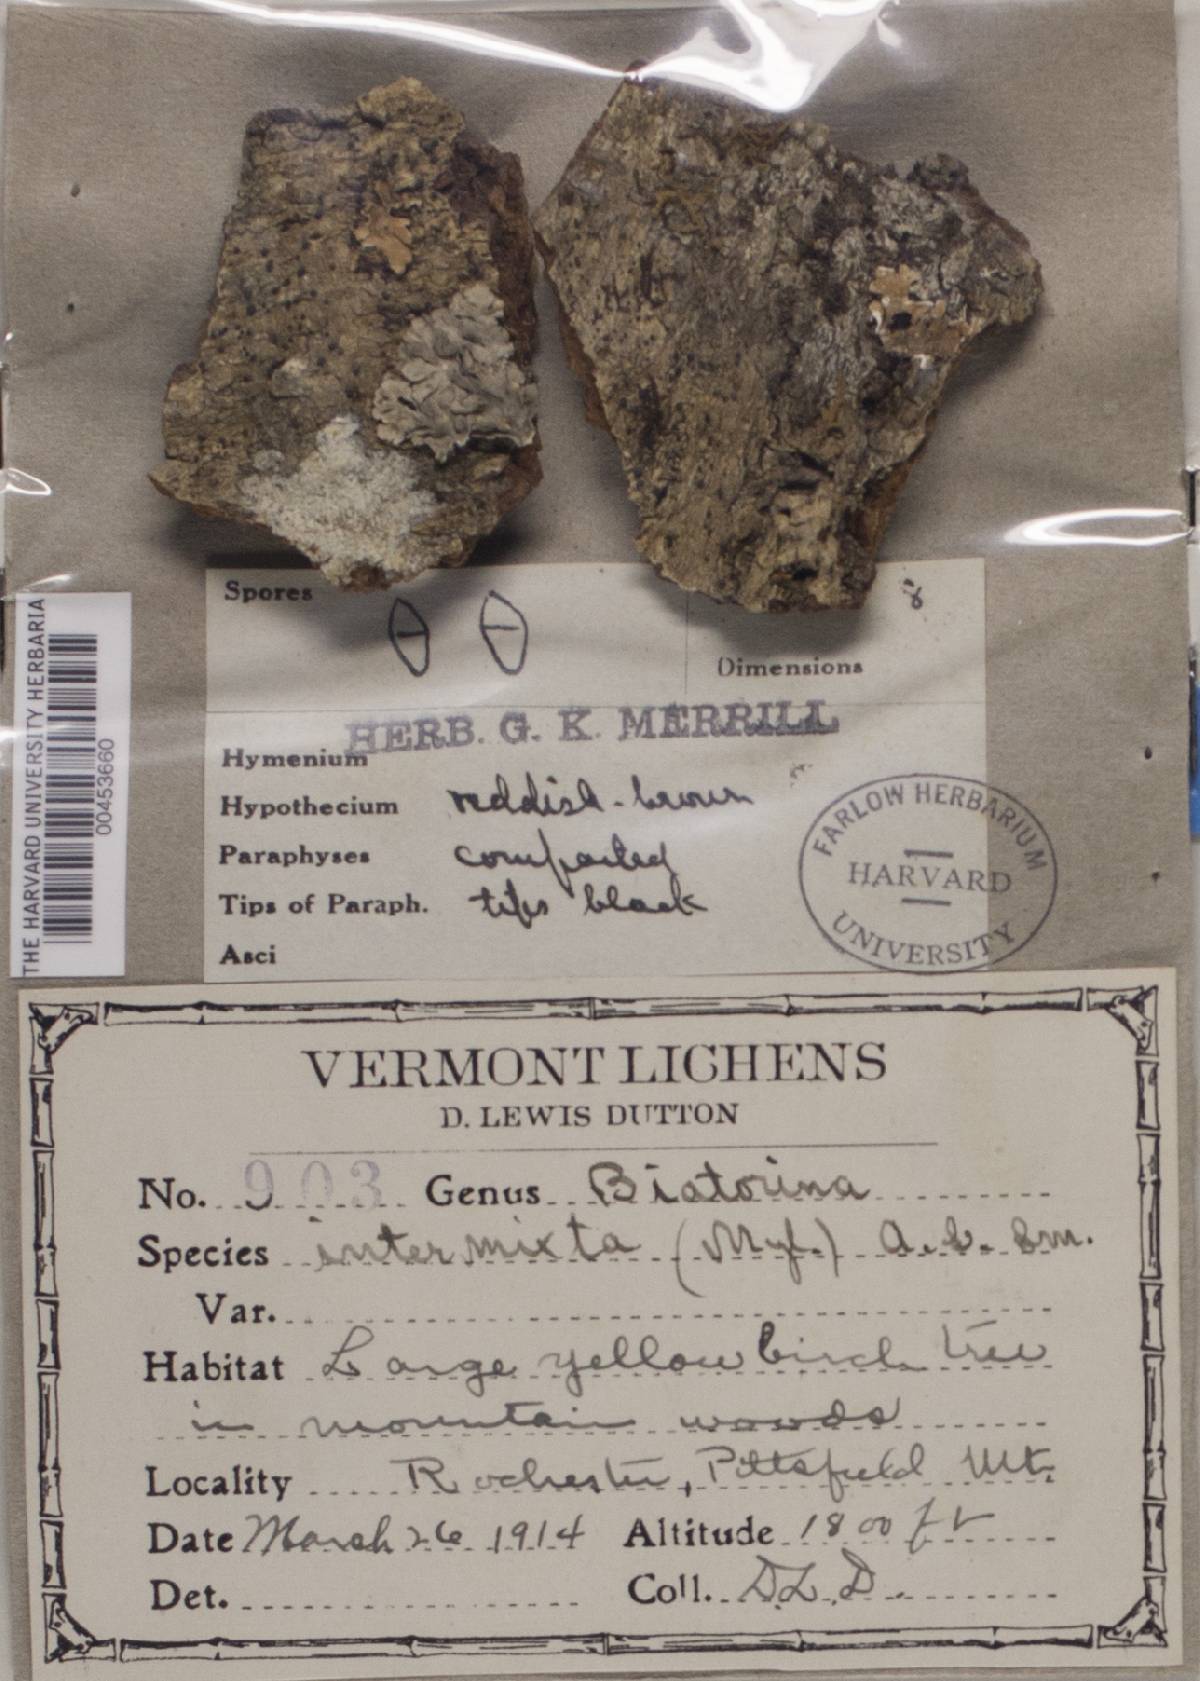 Spores
8
Dimensions
HERB. G. K. MERRILL
Hymenium
Hypothecium reddish-brown
Paraphyses compacted
Tips of Paraph. tips black
Asci
FARLOW HERBARIUM
HARVARD
UNIVERSITY
THE HARVARD UNIVERSITY HERBARIA
00453660
VERMONT LICHENS
D. LEWIS DUTTON
No. 903 Genus Biatorina
Species intermixta (Nyl.) A. L. Sm.
Var.
Habitat Large yellow birch tree
in mountain woods
Locality Rochester, Pittsfield Mt.
Date March 26 1914 Altitude 1800 ft
Det. Coll. D. L. D.